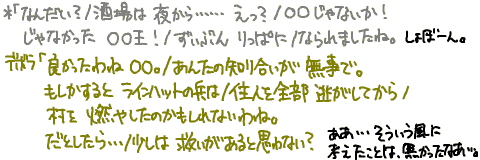 *「なんだい？/酒場は 夜から…… えっ？/○○じゃないか！
じゃなかった ○○王！/ずいぶん りっぱに/なられましたね。 しょぼーん。
デボラ「良かったわね ○○。/あんたの知り合いが 無事で。
もしかすると ラインハットの兵は/住人を全部 逃がしてから/
村を 燃やしたのかもしれないわね。
だとしたら…/少しは 救いがあると思わない？ ああ…そういう風に
考えたことは、無かったなあ。